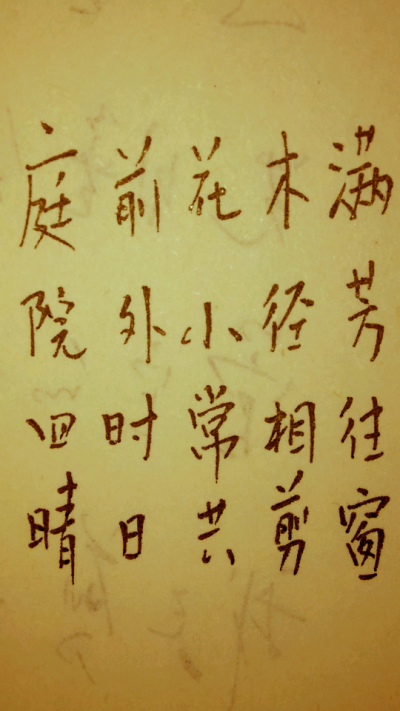 庭前花木满
院外小径芳
四时常相往
晴日共剪窗